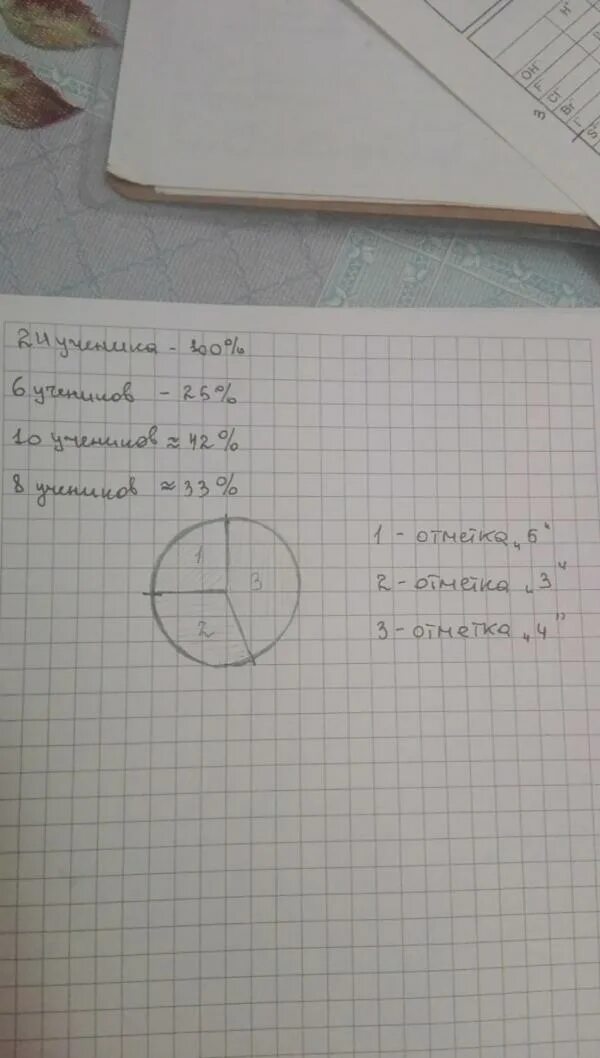 OH⁻
F⁻
Cl⁻
Br⁻
I⁻
S
H⁺
3
24 ученика - 100%
6 учеников - 25%
10 учеников ≈ 42%
8 учеников ≈ 33%
1
3
2
1 - отметка „5“
2 - отметка „3“
3 - отметка „4”